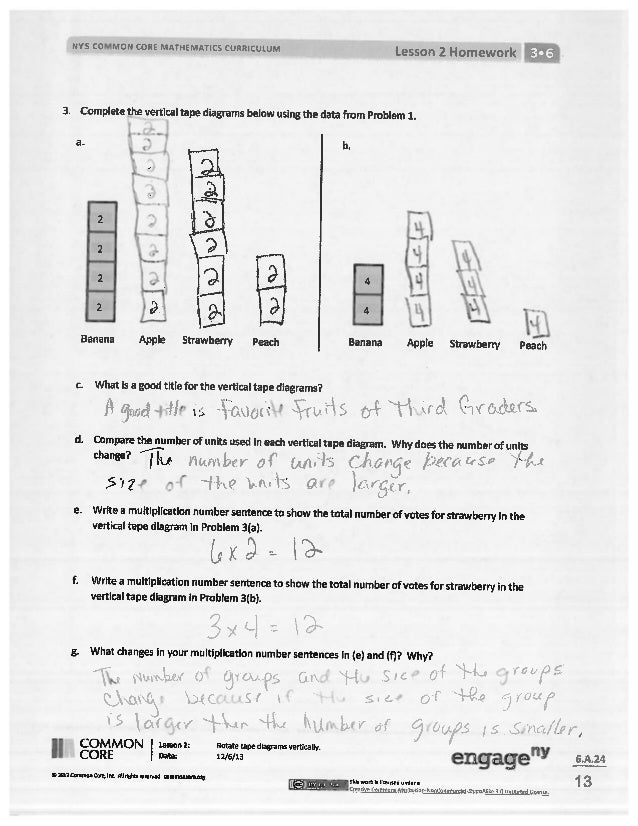 NYS COMMON CORE MATHEMATICS CURRICULUM
Lesson 2 Homework 3•6
3. Complete the vertical tape diagrams below using the data from Problem 1.
a.
b.
2 2 2 2
2 2 2 2 2 2 2 2
2 2 2 2 2 2
2 2
4 4
4 4 4 4
4 4 4
4
Banana Apple Strawberry Peach
Banana Apple Strawberry Peach
c. What is a good title for the vertical tape diagrams?
A good title is Favorite Fruits of Third Graders.
d. Compare the number of units used in each vertical tape diagram. Why does the number of units
change? The number of units change because the
size of the units are larger.
e. Write a multiplication number sentence to show the total number of votes for strawberry in the
vertical tape diagram in Problem 3(a).
6 x 2 = 12
f. Write a multiplication number sentence to show the total number of votes for strawberry in the
vertical tape diagram in Problem 3(b).
3 x 4 = 12
g. What changes in your multiplication number sentences in (e) and (f)? Why?
The number of groups and the size of the groups
change because if the size of the group
is larger then the number of groups is smaller.
COMMON CORE
Lesson 2: Rotate tape diagrams vertically.
Date: 12/6/13
engage ny
6.A.24
© 2013 Common Core, Inc. All rights reserved. commoncore.org
This work is licensed under a
Creative Commons Attribution-NonCommercial-ShareAlike 3.0 Unported License.
13